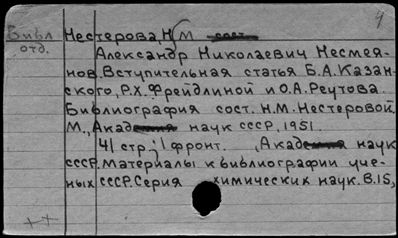 4
Библ Нестерова, Н М сост.
отд. Александр Николаевич Несмея-
нов. Вступительная статья Б.А. Казан-
ского, Р.Х. Фрейдлиной и О.А. Реутова.
Библиография сост. Н.М. Нестеровой.
М., Академия наук СССР, 1951.
41 стр., 1 фронт. , Академия наук
СССР. Материалы к библиографии уче-
ных СССР. Серия химических наук. В.15,